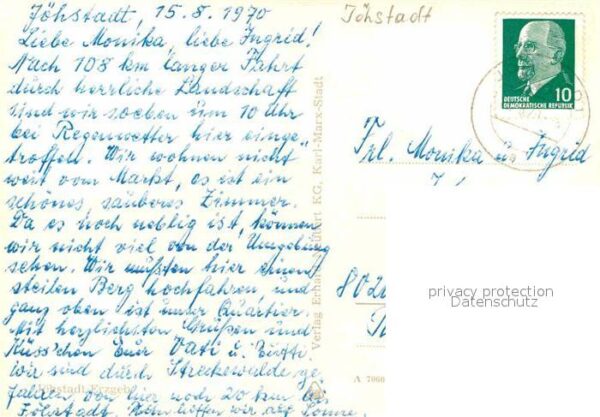 Jöhstadt, 15.8.1970
Liebe Monika, liebe Ingrid!
Nach 108 km langer Fahrt
durch herrliche Landschaft
sind wir soeben um 10 Uhr
bei Regenwetter hier einge-
troffen. Wir wohnen nicht
weit vom Markt, es ist ein
schönes, sauberes Zimmer.
Da es noch neblig ist, können
wir nicht viel von der Umgebung
sehen. Wir mußten hier einen
steilen Berg hochfahren und
ganz oben ist unser Quartier.
Mit herzlichsten Grüßen und
Küsschen Euer Vati u.
wir sind durch Streckewalde ge-
fahren, von hier noch 20 km bis
Jöhstadt. Nun hoffen wir auf Sonne.
Jöhstadt Erzgeb
Verlag Erhard KG, Karl-Marx-Stadt
A 7060
Jöhstadt
10
DEUTSCHE
DEMOKRATISCHE REPUBLIK
Frl. Monika u. Ingrid
802
privacy protection
Datenschutz